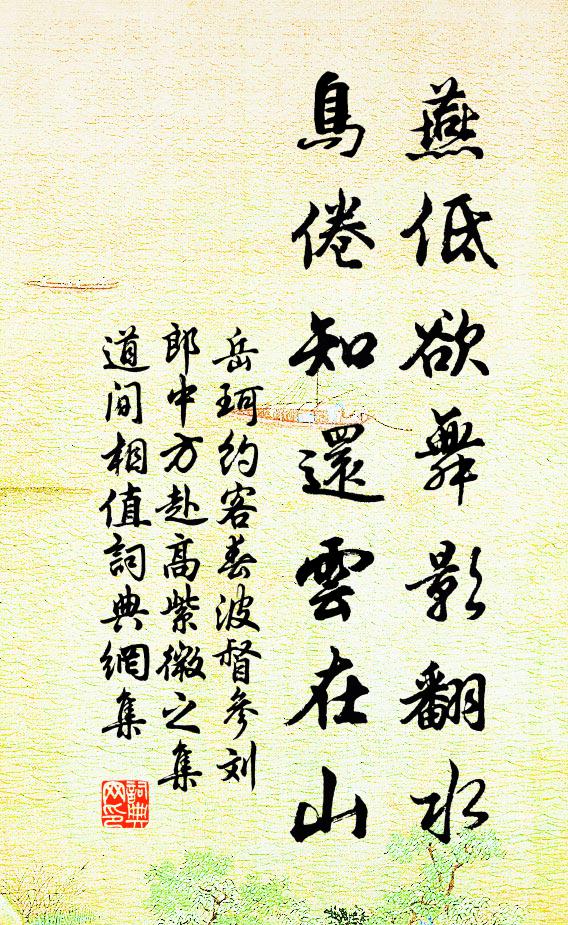 燕低欲舞影翻水
鳥倦知還雲在山
岳珂約客春波督參刘
郎中方赴高紫微之集
道间相值詞典網集
詞典網印